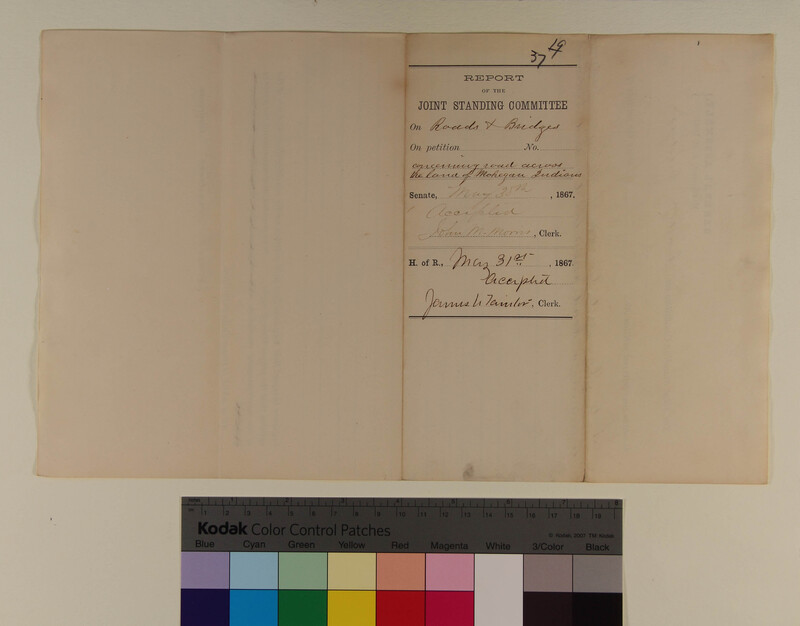 37 19
REPORT
OF THE
JOINT STANDING COMMITTEE
On Roads & Bridges
On petition No.
concerning road across
the land of Mohegan Indians
Senate, May 28th, 1867.
Accepted
John M. Morris, Clerk.
H. of R., May 31st, 1867
Accepted
James U Taintor, Clerk.
Kodak Color Control Patches
© Kodak, 2007 TM: Kodak
Blue Cyan Green Yellow Red Magenta White 3/Color Black